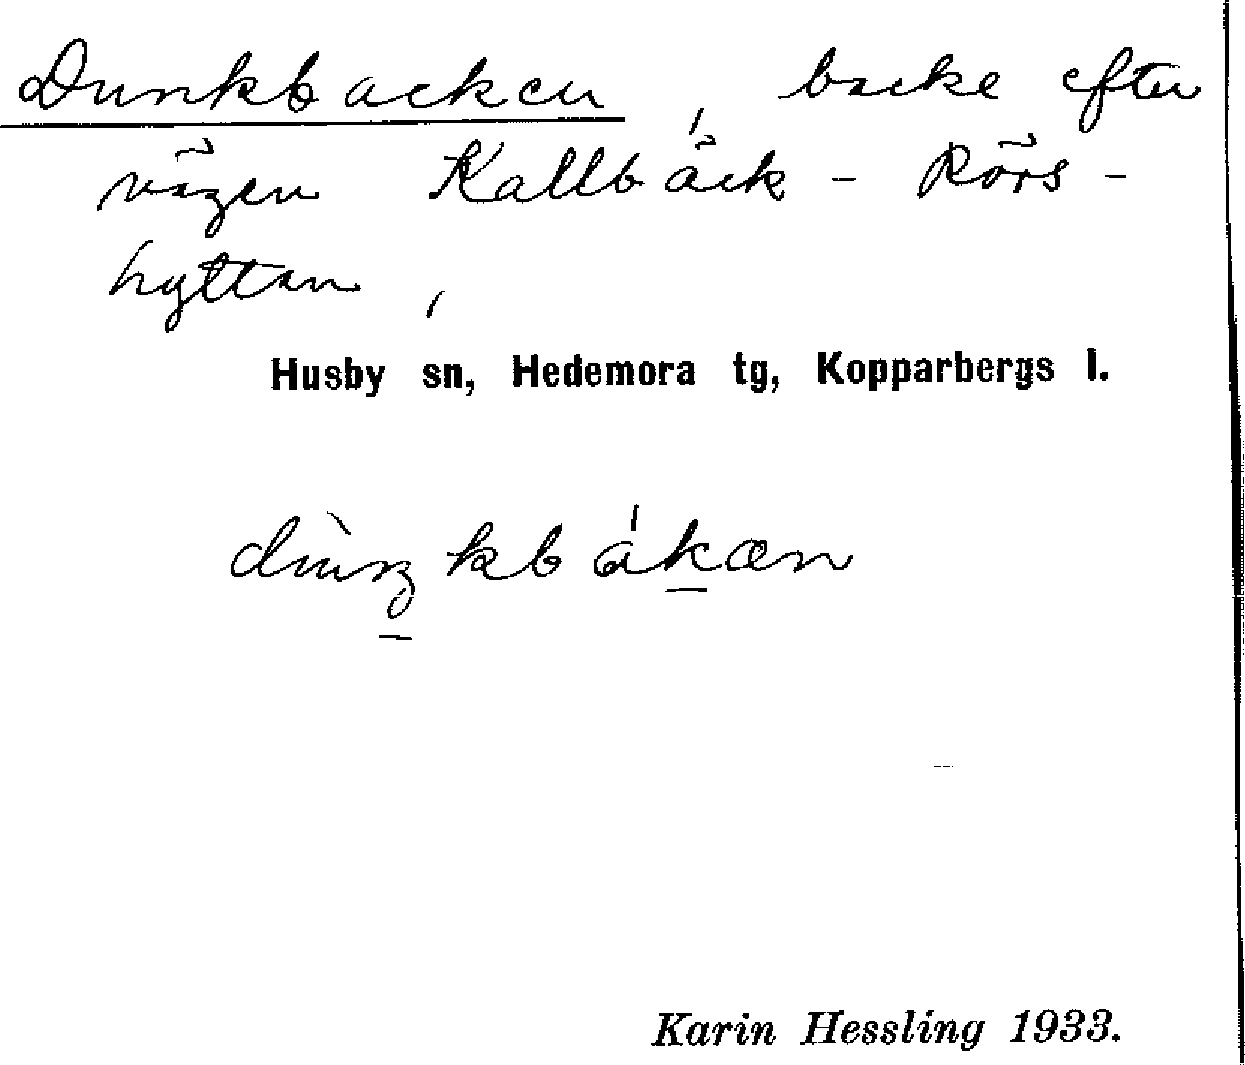 Dunkbacken, backe efter
vägen Kallbäck - Rörs-
hyttan,
Husby sn, Hedemora tg, Kopparbergs l.
Karin Hessling 1933.